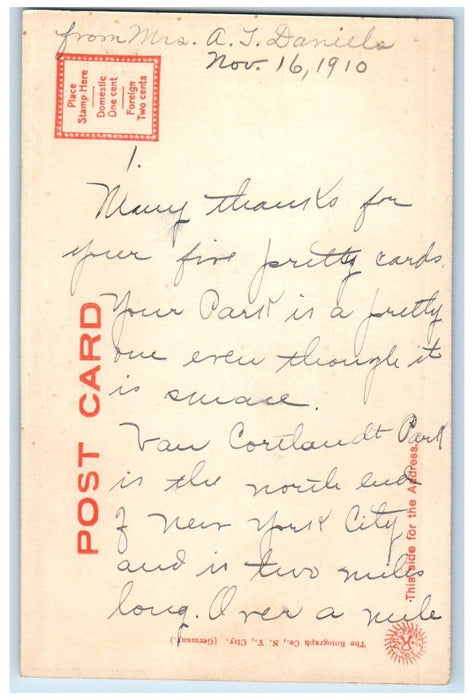 from Mrs. A. T. Daniels
Nov. 16, 1910
Place
Stamp Here
Domestic
One cent
Foreign
Two cents
1.
Many thanks for
your five pretty cards.
Your Park is a pretty
one even though it
is smace.
Van Cortlandt Park
is the north end
of New York City
and is two miles
long. Over a mile
POST CARD
This side for the Address.
The Rotograph Co., N. Y., City. (Germany.)